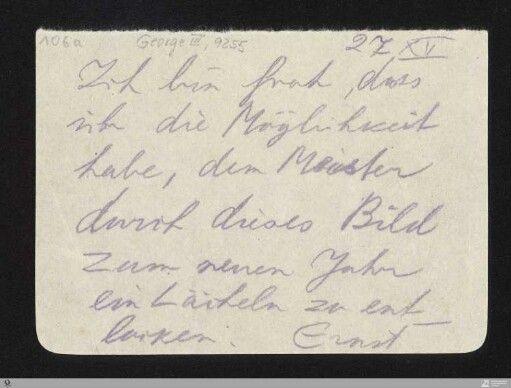 106a George III, 9255 27 XV
Ich bin froh, dass
ich die Möglichkeit
habe, dem Meister
durch dieses Bild
zum neuen Jahr
ein Lächeln zu ent
locken. Ernst